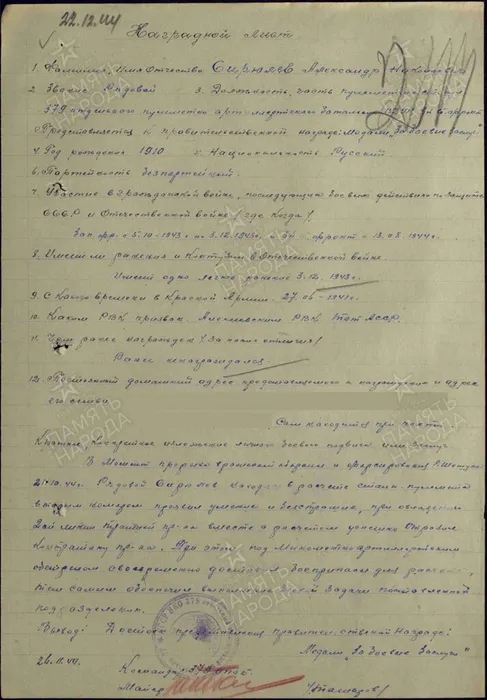 22.12.44
Наградной лист
1. Фамилия, Имя Отчество Сиронов Александр
2. Звание Рядовой 3. Должность, часть пулеметчик
379 отдельного пулеметно артиллерийского батальона
Представляется к правительственной награде: Медаль "За боевые заслуги"
4. Год рождения 1910 5. Национальность Русский
6. Партийность безпартейный
7. Участие в гражданской войне, последующих боевых действиях по защите
СССР и Отечественной войне (где когда)
Зап. фр. с 5.10-1943 по 3.12.1943г. фронт с 13.08.1944г.
8. Имеет ли ранения и контузии в Отечественной войне.
Имеет одно легкое ранение 3.12.1943г.
9. С какого времени в Красной Армии. 27.06-1941г.
10. Каким РВК призван. Алексеевским РВК Тат АССР.
11. Чем ранее награжден (за какие отличия)
Ранее ненаграждался.
12. Постоянный домашний адрес представляемого к награждению и адрес
его семьи
Сам находится при части
Краткое, конкретное изложение личного боевого подвига или заслуг
В момент прорыва вражеской обороны и форсирования р.
21.10.44г. Рядовой Сиронов находясь в расчете станк-пулемета
номером проявил умение и безстрашие, при овладении
2ой линии траншей пр-ка вместе с расчетом успешно отразив
контратаку пр-ка. При этом под минометно артиллерийским
обстрелом своевременно доставлял боеприпасы для расчета,
тем самым обеспечив выполнение боевой задачи поставленной
подразделению.
Вывод: Достоин правительственной награде:
Медаль "За боевые заслуги"
26.11.44.
Командир 379 ОПАБ
Майор
ПАМЯТЬ
НАРОДА